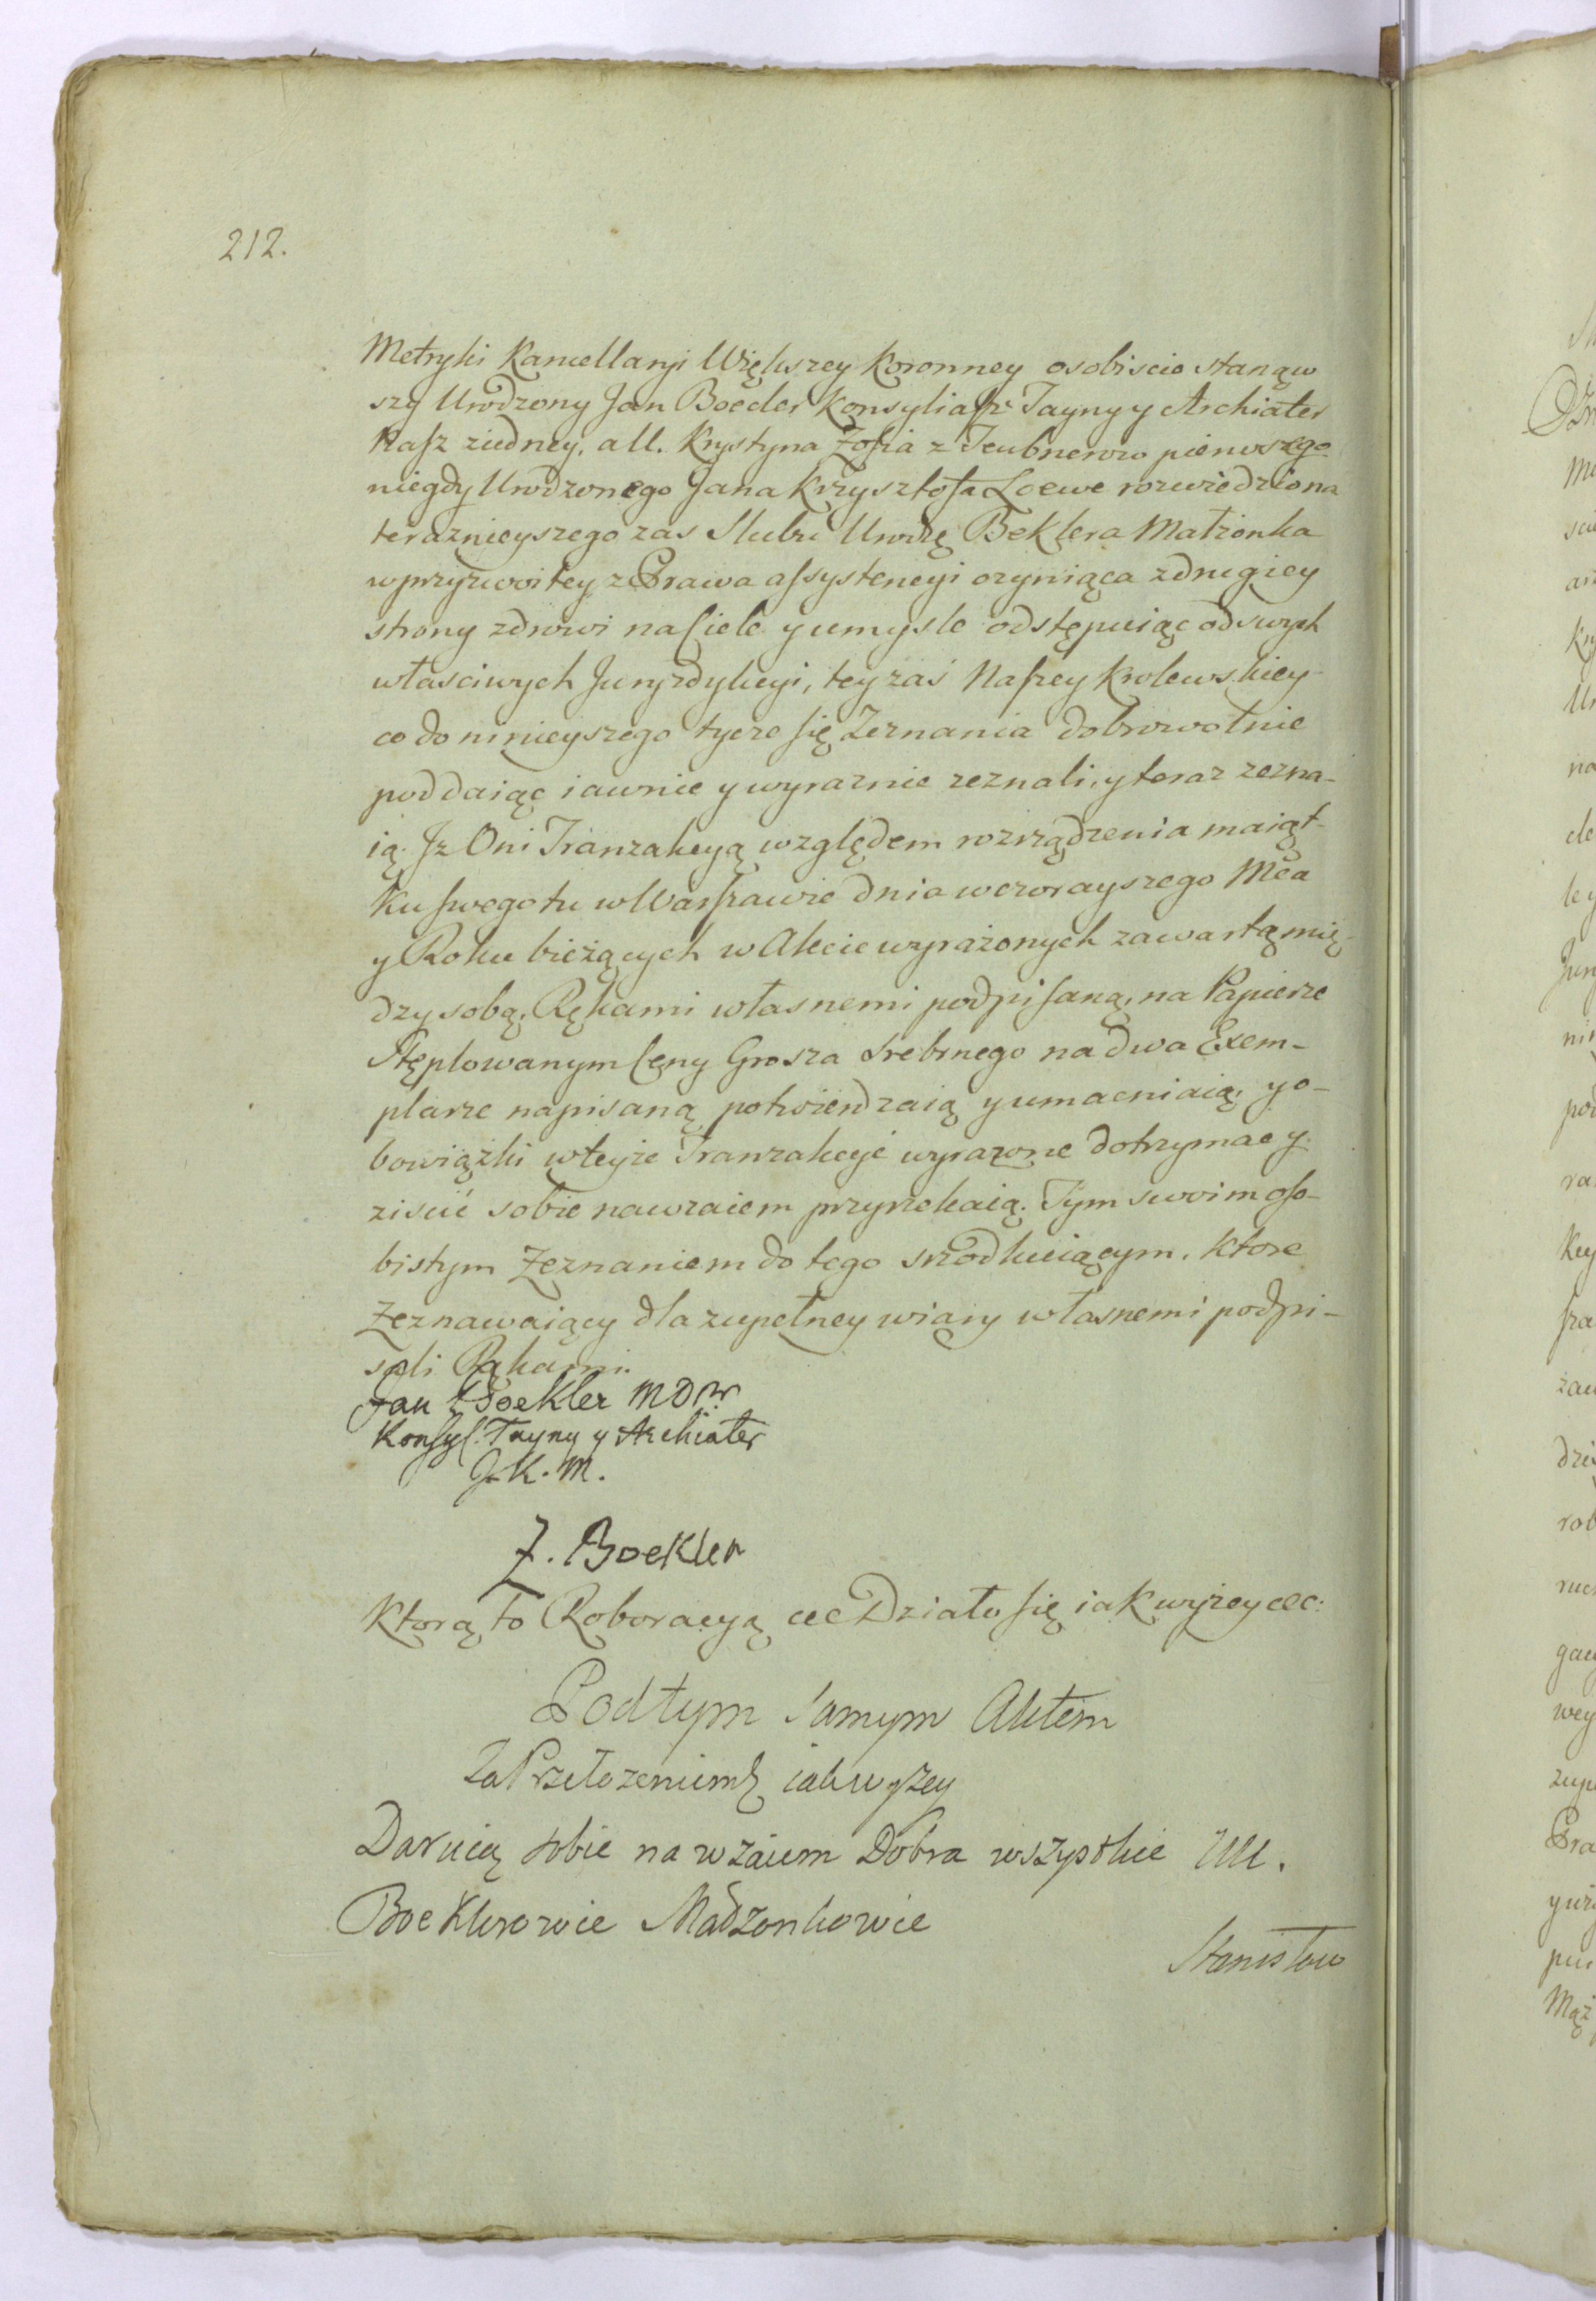 212.
Metryki Kancellaryi Większey Koronney osobiscie stanąw
szy Urodzony Jan Boecler Konsyliasz Tayny y Archiater
Nasz ziedney, all. Krystyna Zofia z Teubnerow pierwszego
niegdy Urodzonego Jana Krzysztofa Loewe rozwiedziona
teraznieyszego zas Slubu Urodzę Beklera Małżonka
w przyzwoitey z Prawa assystencyi czyniąca z drugiey
strony zdrowi na Ciele y umysle odstępuiąc od swych
własciwych Juryzdykcyi, tey zaś Naszey Krolewskiey
co do ninieyszego tycze się Zeznania dobrowolnie
poddaiąc iawnie y wyraznie zeznali, y teraz zezna-
ią. Jz Oni Tranzakcyą względem rozrządzenia maiąt-
ku swego tu w Warszawie dnia wczorayszego Mca
y Roku bieżących w Akcie wyrażonych zawartą mię-
dzy sobą, Rękami własnemi podpisaną, na Papierze
Stęplowanym Ceny Grosza srebrnego na dwa Exem-
plarze napisaną potwierdzaią y umacniaią, y o-
bowiązki w teyże Tranzakcyi wyrazone dotrzymac y
ziscić sobie nawzaiem przyrzekaią. Tym swoim oso-
bistym Zeznaniem do tego srzodkuiącym. Ktore
Zeznawaiący dla zupełney wiary własnemi podpi-
sali Rękami.
Jan Boekler MDr
Konsyl. Tayny y Archiater
J. K. M.
Z. Boekler
Ktorą to Roboracyą etc Działo się iak wyzey etc:
Pod tym samym Aktem
Za Przełozeniem iak wyzey
Daruią sobie na wzaiem Dobra wszystkie UU.
Boeklerowie Madzonkowie
Stanisław